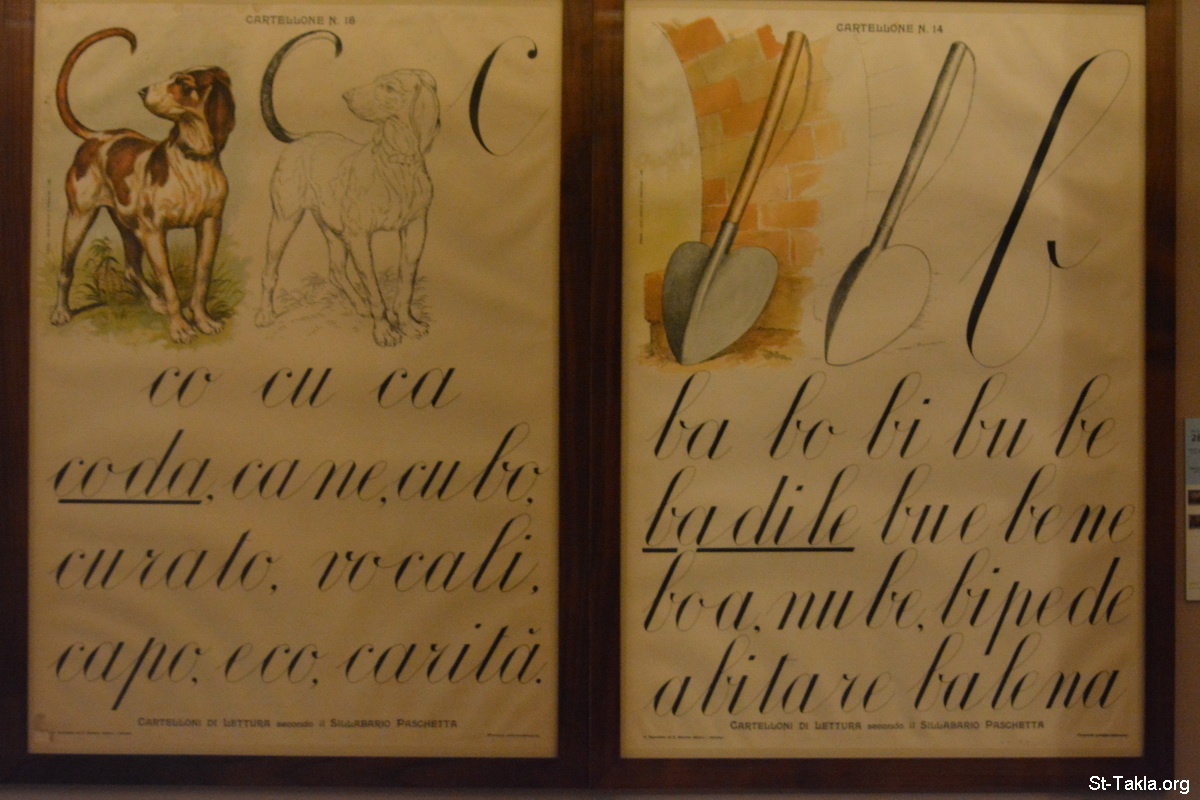 CARTELLONE N. 18
C C C
co cu ca
coda, cane, cubo,
curato, vocali,
capo, eco, carità.
CARTELLONI DI LETTURA secondo il SILLABARIO PASCHETTA
CARTELLONE N. 14
b
ba bo bi bu be
badile bue bene
boa, nube, bipede
abitare balena
CARTELLONI DI LETTURA secondo il SILLABARIO PASCHETTA
St-Takla.org